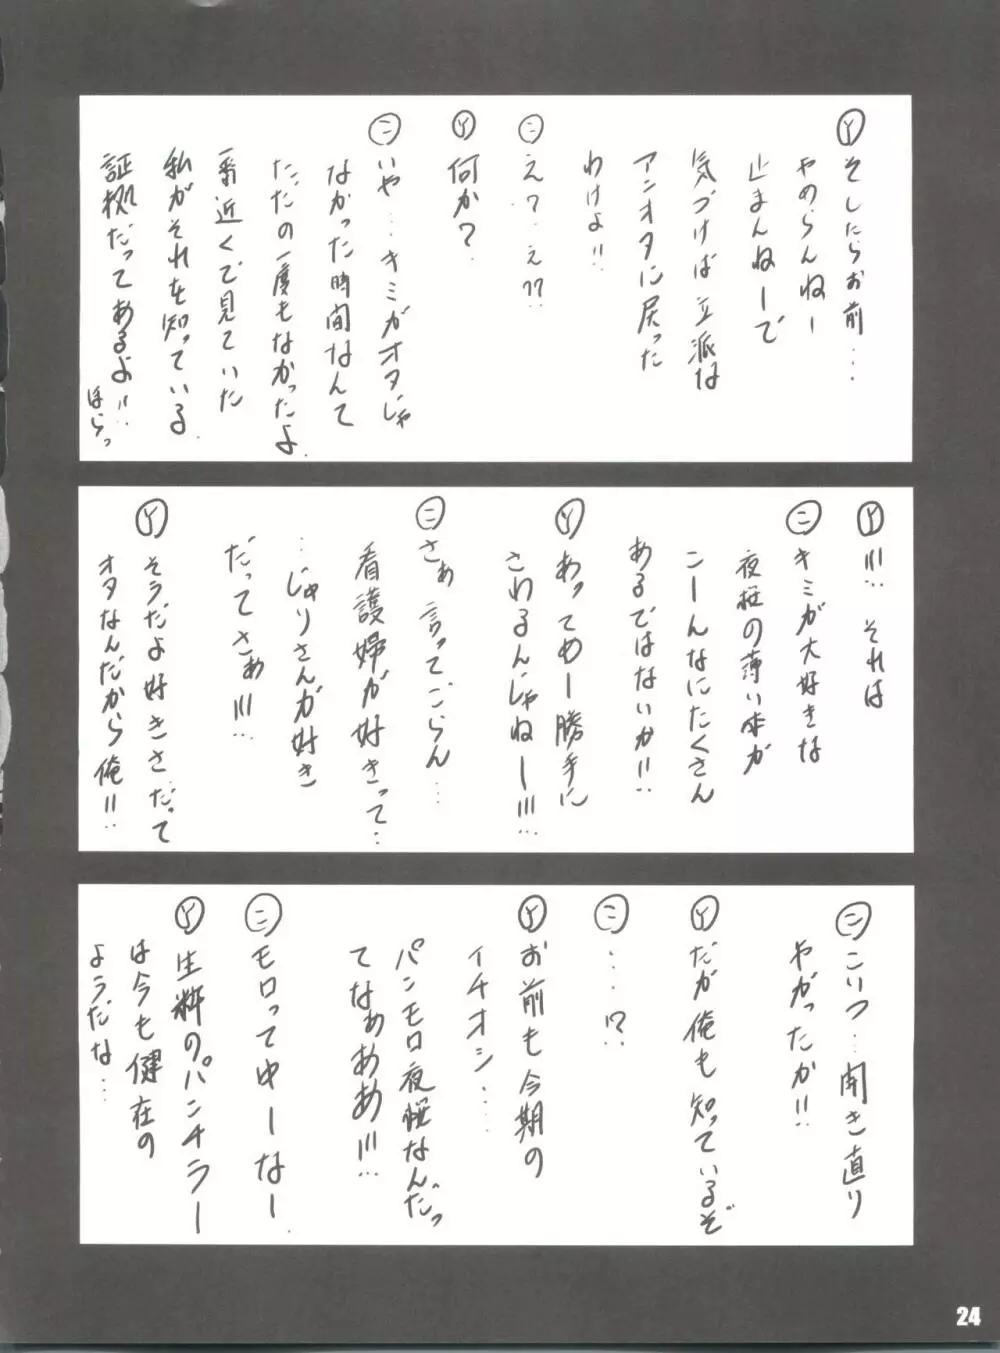 Ⓨ そしたらお前…
やめらんねー
止まんねーで
気づけば立派な
アンオタに戻った
わけよ!!
㊁ え?…え??
Ⓨ 何か?
㊁ いや…キミがオタじゃ
なかった時間なんて
ただの一度もなかったよ
一番近くで見ていた
私がそれを知っている.
証拠だってあるよ!!…
ほらっ
Ⓨ !!!… それは
㊁ キミが大好きな
夜桜の薄い本が
こーんなにたくさん
あるではないか!!…
Ⓨ あってめー勝手に
さわるんじゃねー!!!…
㊁ さぁ 言ってごらん…
看護婦が好きって…
…じゅりさんが好き
だってさぁ!!!…
Ⓨ そうだよ好きさだって
オタなんだから俺!!…
㊁ こいつ…開き直り
やがったか!!
Ⓨ だが俺も知っているぞ
㊁ …!?
Ⓨ お前も今期の
イチオシ……
パンモロ夜桜なんだっ
てなぁああ!!!…
㊁ モロってゆーなー.
Ⓨ 生粋のパンチラー
は今も健在の
ようだな…
24